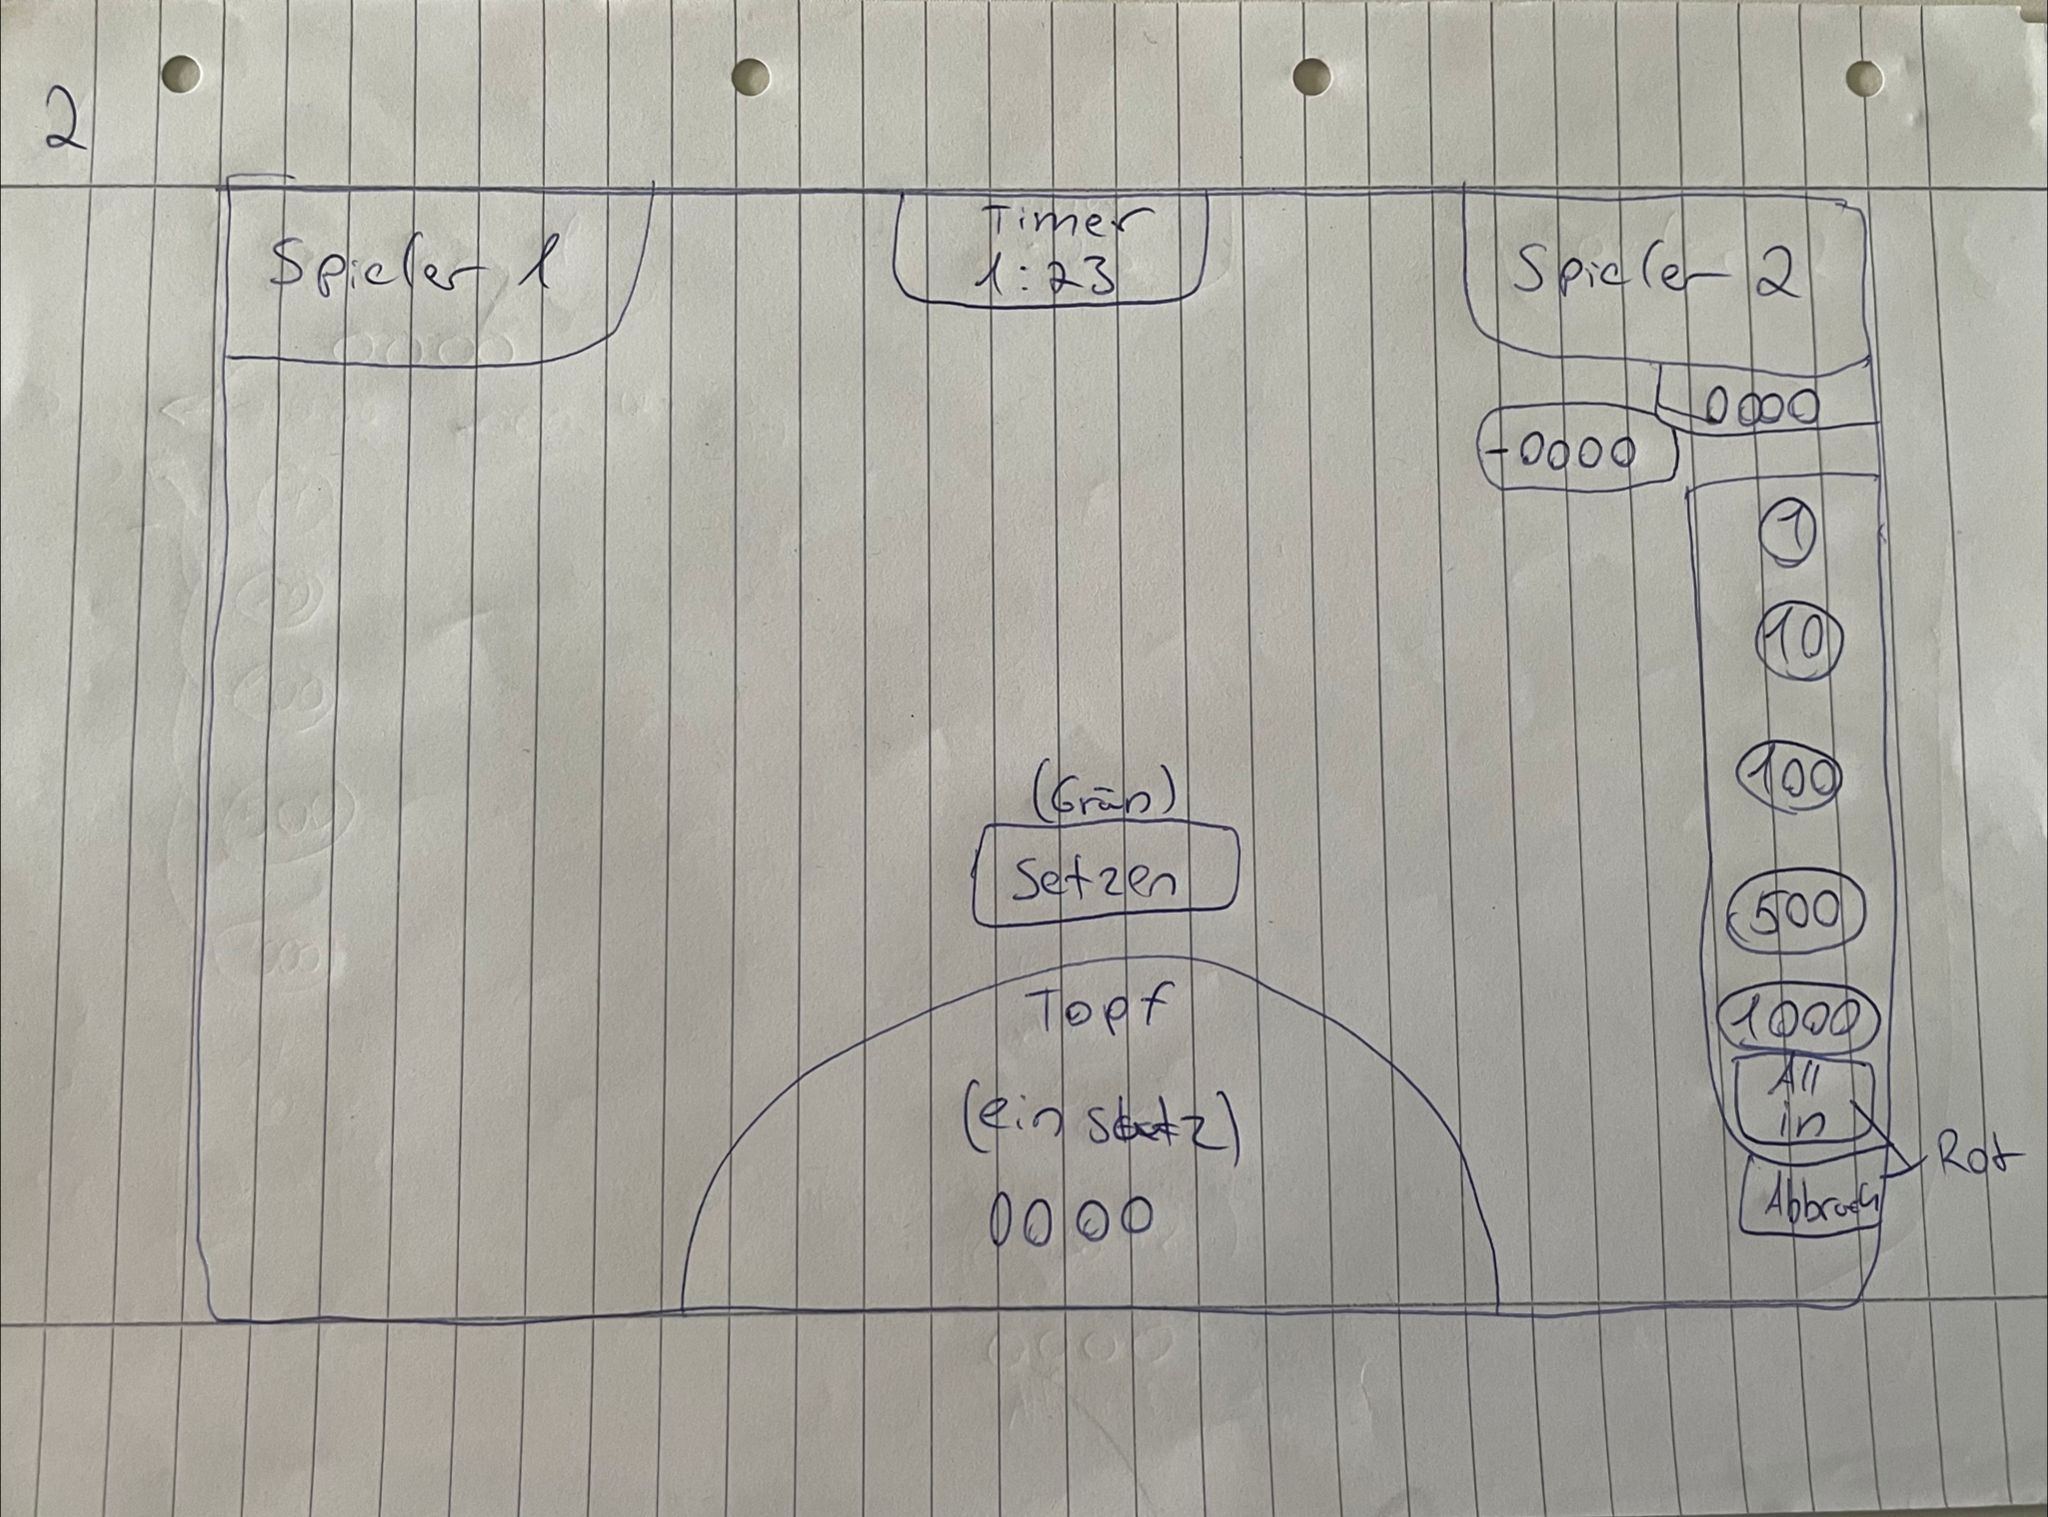 2
Spieler 1
Timer
1:23
Spieler 2
0000
-0000
1
10
100
500
1000
All
in
Rot
Abbruch
(Grün)
Setzen
Topf
(einsatz)
0000